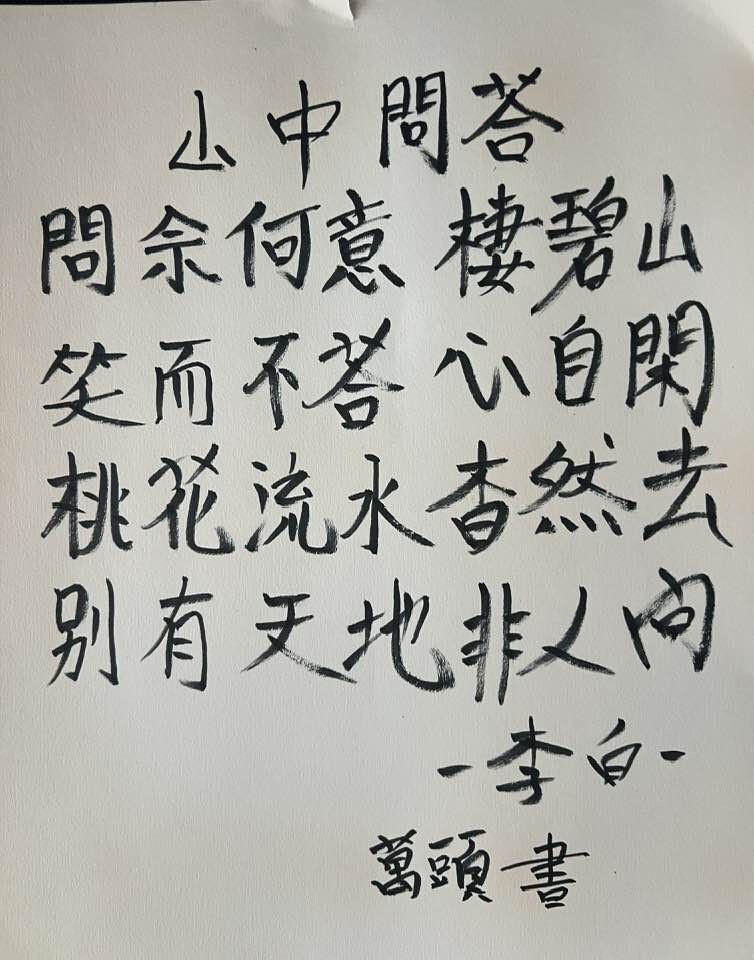 山中問荅
問余何意棲碧山
笑而不荅心自閑
桃花流水杳然去
别有天地非人间
-李白-
萬頭書